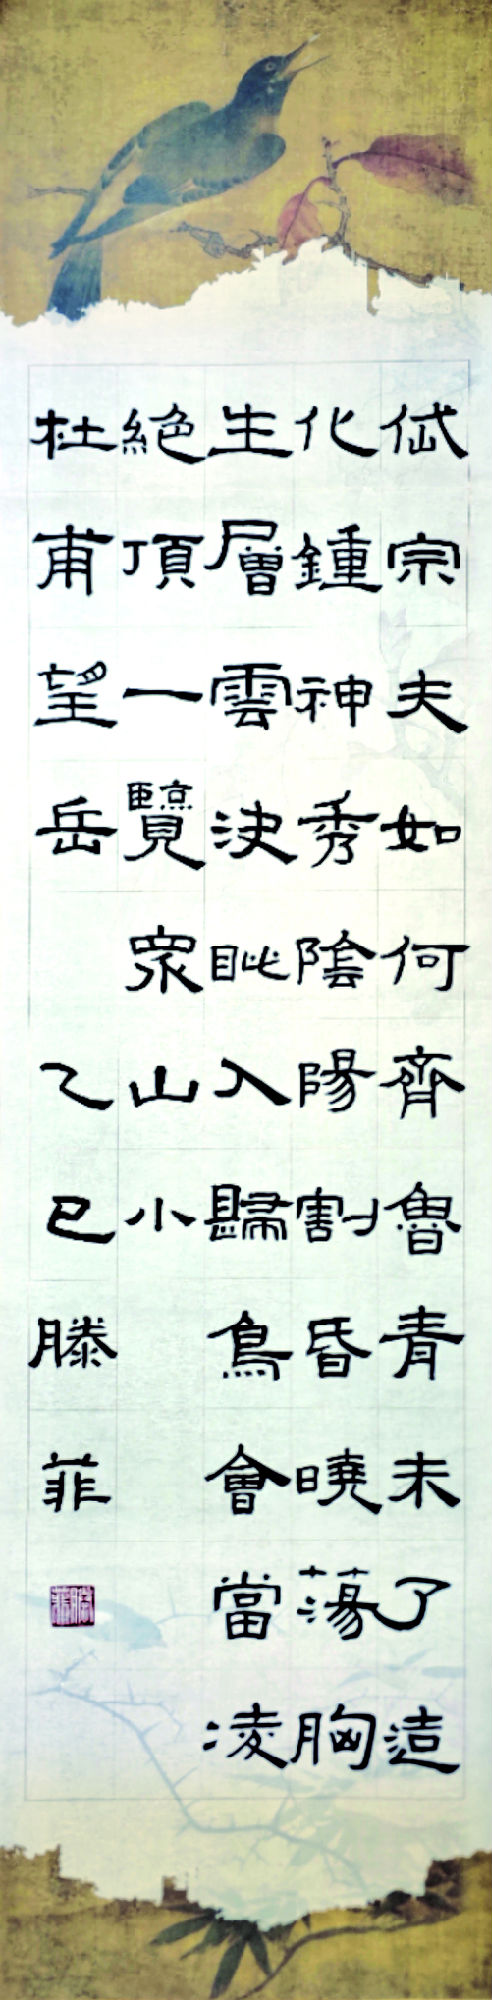 岱宗夫如何齊魯青未了造
化鍾神秀陰陽割昏曉蕩胸
生層雲決眦入歸鳥會當凌
絕頂一覽眾山小
杜甫望岳 乙巳滕菲